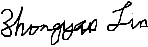 Zhongyao Lin